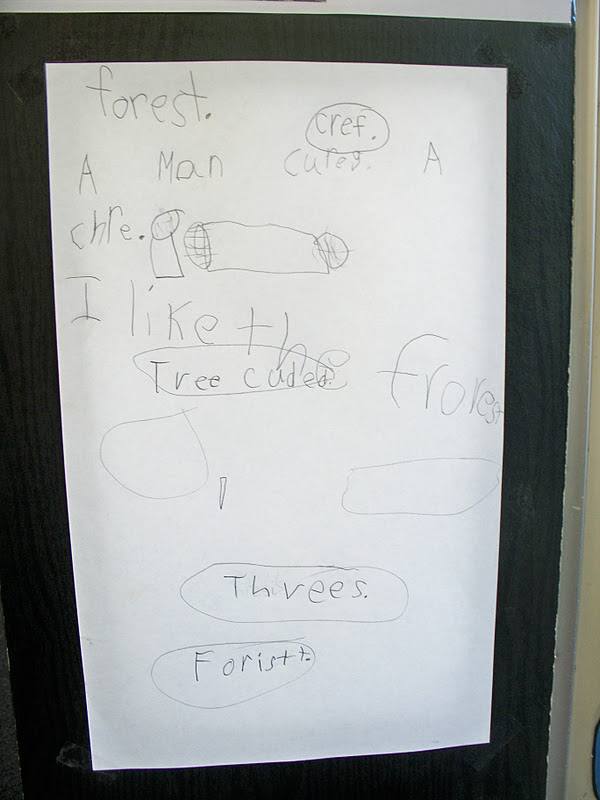 forest.
cref.
A Man cuted. A
chre.
I like the frorest
Tree cuded.
Threes.
Foristt.